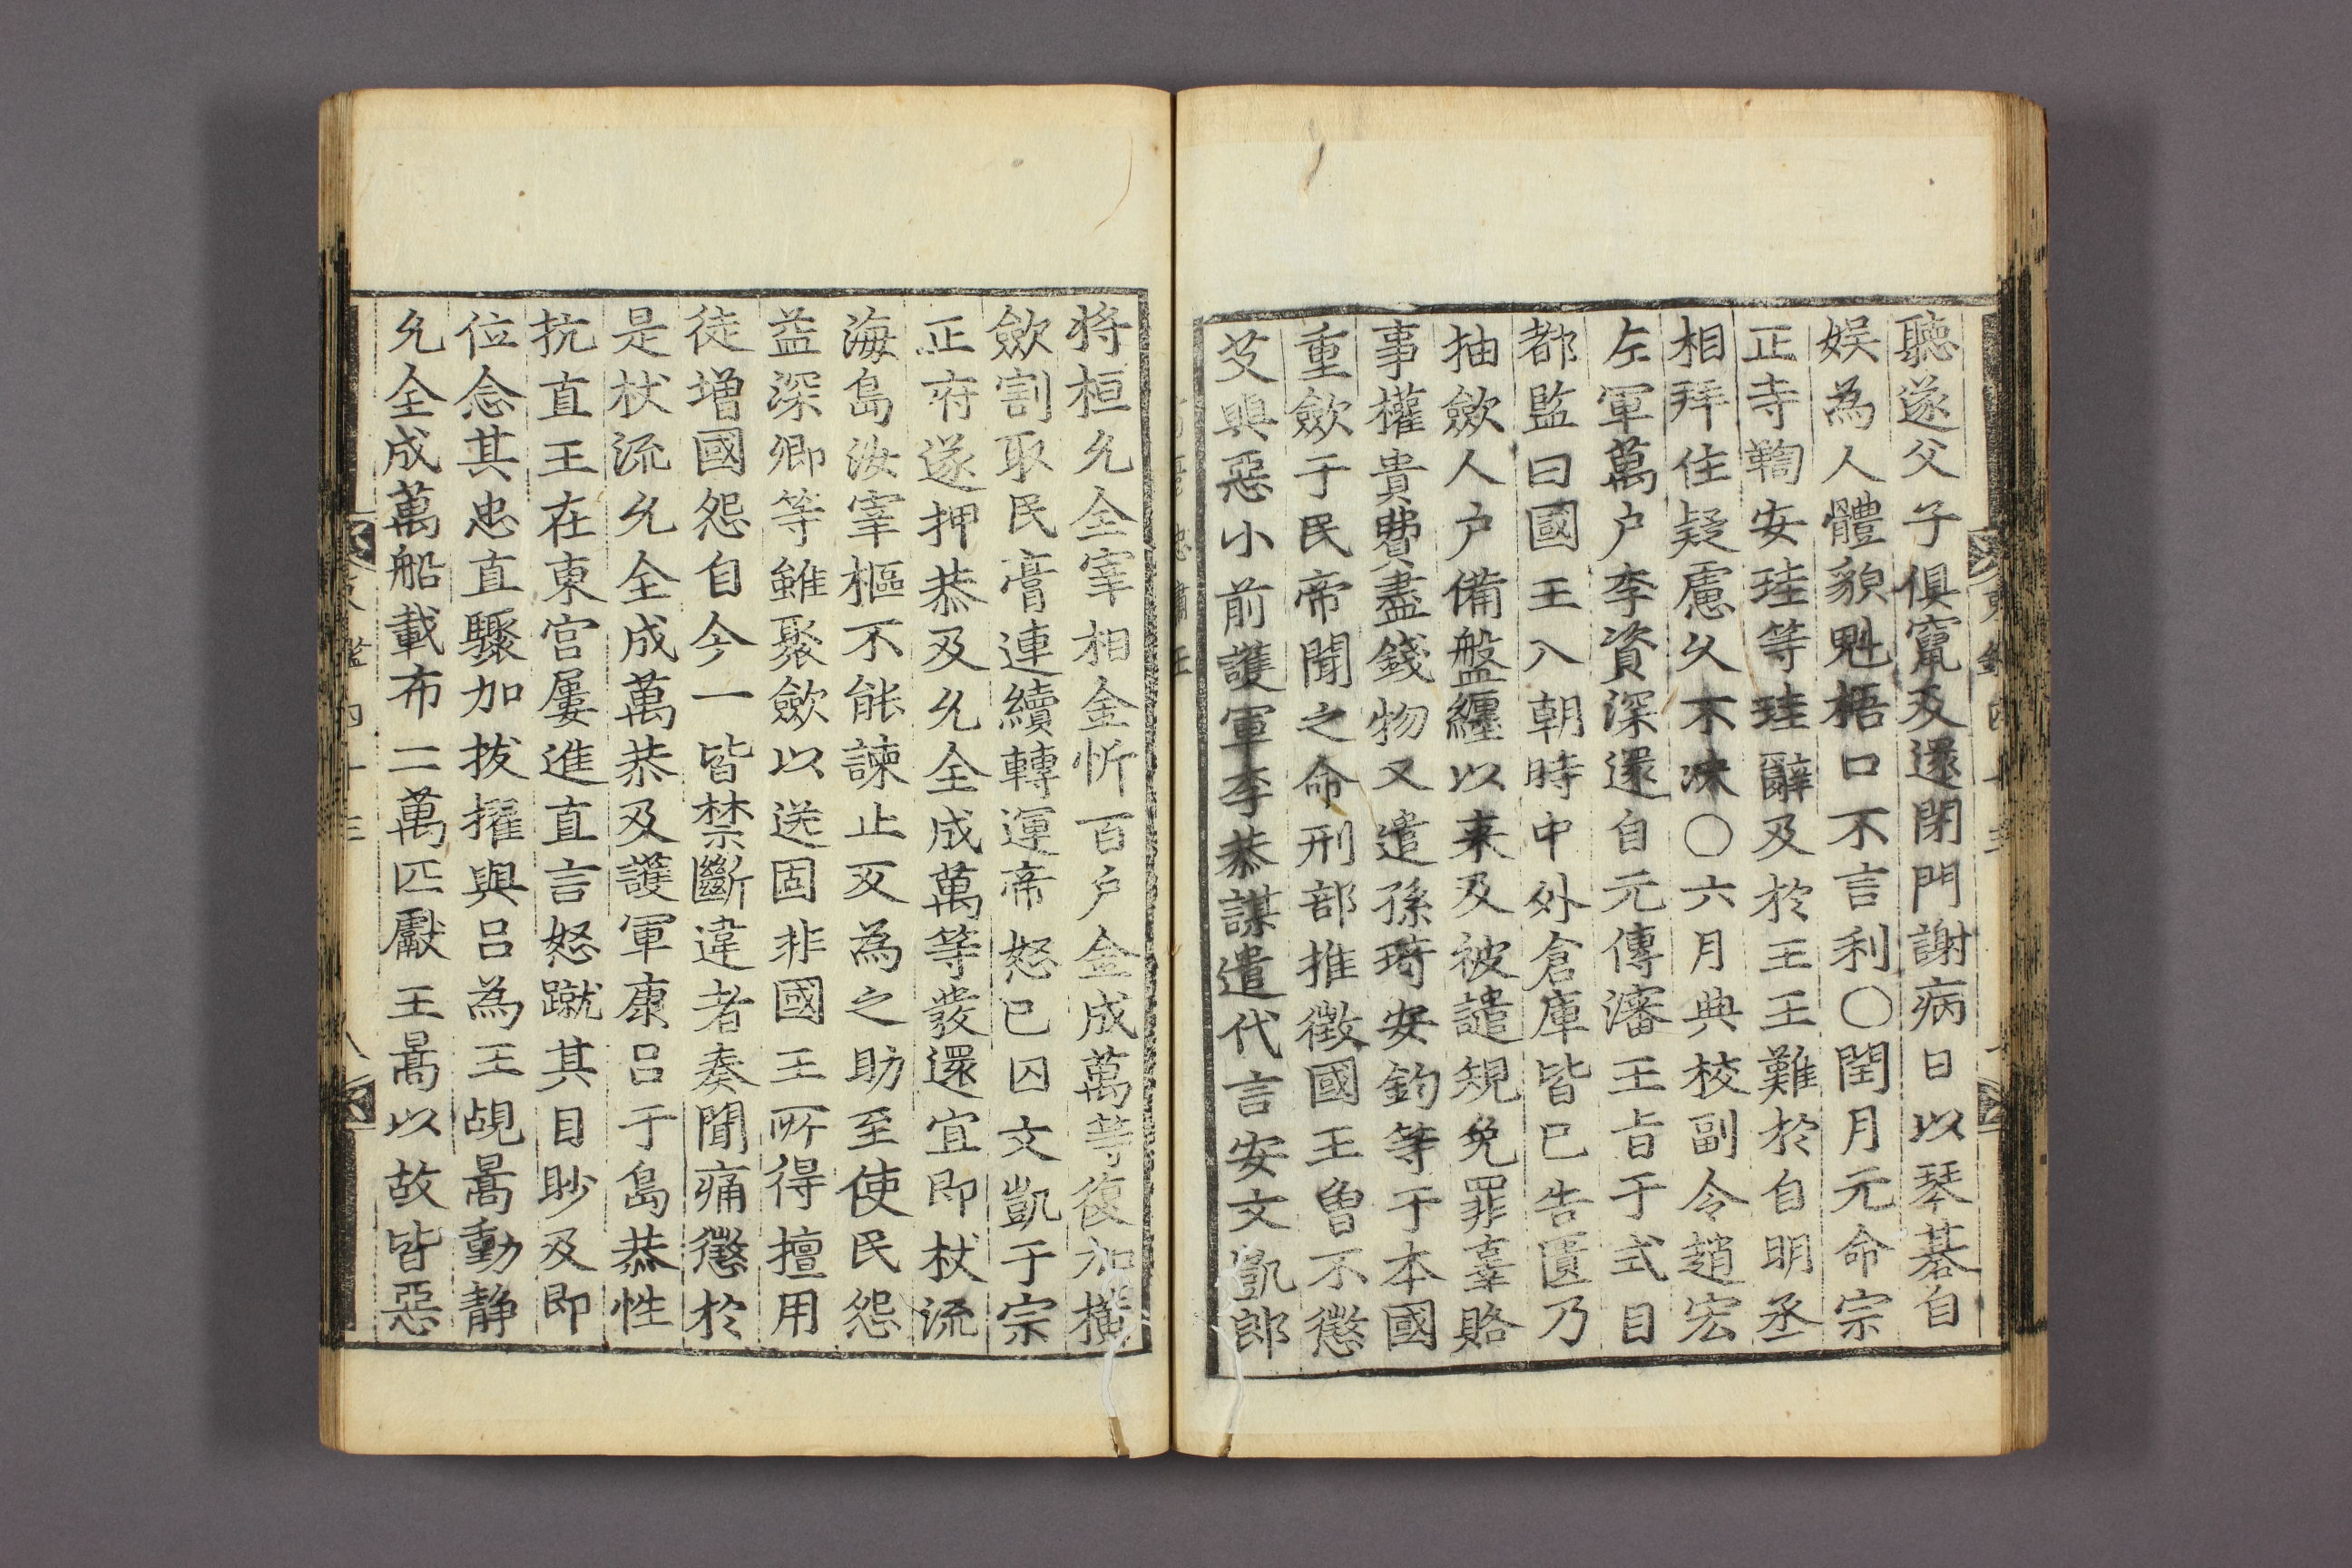 聽遂父子俱竄及還閉門謝病日以琴碁自
娛為人體貌魁梧口不言利〇閏月元命宗
正寺鞫安珪等珪辭及於王王難於自明丞
相拜住疑慮久不决〇六月典校副令趙宏
左軍萬户李資深還自元傳瀋王旨于式目
都監曰國王入朝時中外倉庫皆已告匱乃
抽歛人户備盤纏以来及被譴規免罪辜賂
事權貴費盡錢物又遣孫琦安鈞等于本國
重歛于民帝聞之命刑部推徵國王曽不懲
艾與惡小前護軍李恭謀遣代言安文凱郎
将桓允全宰相金忻百户金成萬等復加橫
歛割取民膏連續轉運帝怒已囚文凱于宗
正府遂押恭及允全成萬等發還宜即杖流
海島汝宰樞不能諫止又為之助至使民怨
益深卿等雖聚歛以送固非國王所得擅用
徒增國怨自今一皆禁斷違者奏聞痛懲於
是杖流允全成萬恭及護軍康呂于島恭性
抗直王在東宮屢進直言怒蹴其目眇及即
位念其忠直驟加拔擢與呂為王覘暠動静
允全成萬船載布二萬匹獻王暠以故皆惡